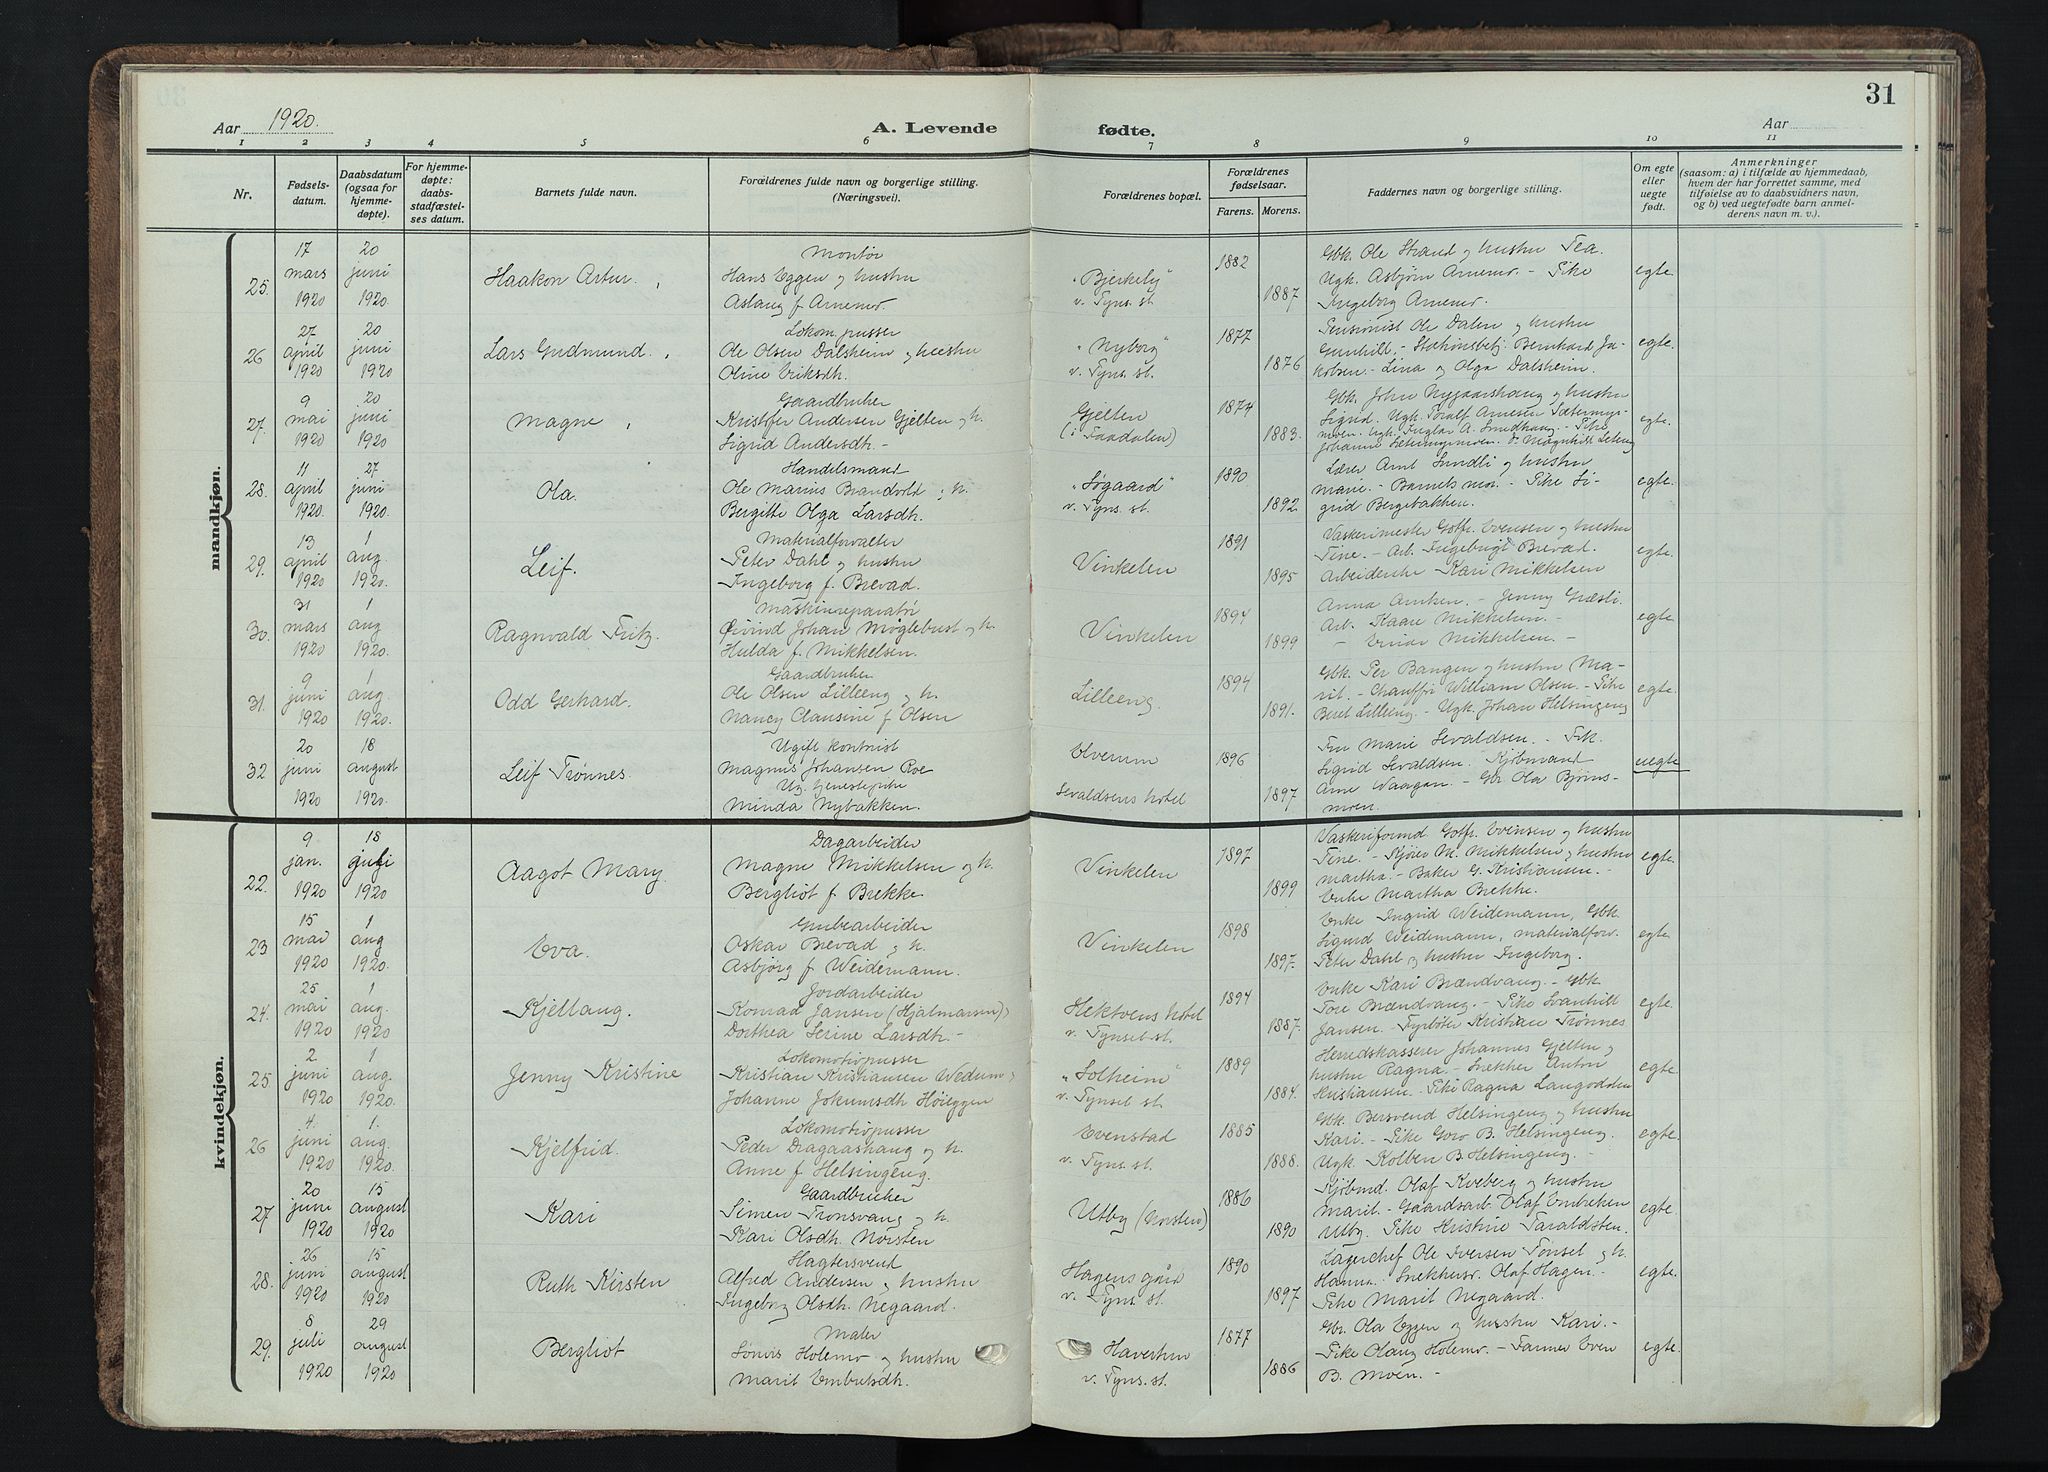 31
Aar 1920.
A. Levende fødte.
Aar
1 2 3 4 5 6 7 8 9 10 11
Nr.
Fødselsdatum.
Daabsdatum (ogsaa for hjemmedøpte).
For hjemmedøpte: daabsstadfæstelses datum.
Barnets fulde navn.
Forældrenes fulde navn og borgerlige stilling. (Næringsvei).
Forældrenes bopæl.
Forældrenes fødselsaar.
Farens. Morens.
Faddernes navn og borgerlige stilling.
Om egte eller uegte født.
Anmerkninger
(saasom: a) i tilfælde av hjemmedaab,
hvem der har forrettet samme, med
tilføielse av to daabsvidners navn,
og b) ved uegtefødte barn anmel-
derens navn m. v.).
mandkjøn.
25. 17 mars 1920 20 juni 1920. Haakon Artur.
Montør
Hans Eggen og hustru
Aslaug f. Arnemo
"Bjerkely"
v. Tyns. st.
1882 1887
Gbk. Ole Strand og hustru Tea.
Ugk. Asbjørn Arnemo. - Pike
Ingeborg Arnemo.
egte.
26 27 april 1920 20 juni 1920 Lars Gudmund.
Lokom.pusser
Ole Olsen Dalsheim og hustru
Oline Eriksdh.
"Nyborg"
v. Tyns. st.
1877 1876
Pensionist Ole Dalen og hustru
Gunhild. - Stationsbetj. Bernhard Ja-
kobsen. - Lina og Olga Dalsheim.
egte.
27. 9 mai 1920 20 juni 1920. Magne
Gaardbruker
Kristofer Andersen Gjelten og h.
Sigrid Andersdh -
Gjelten
(i Faadalen)
1874 1883.
Gbk. John Nygaardshaug og hustru
Sigrid. Ugk. Toralf Arnesen Sætermys-
moen.
egte.
28. 11 april 1920. 27 juni 1920. Ola.
Handelsmand
Ole Marius Brandvold, h.
Bergitte Olga Larsdh.
"Søgaard"
v. Tyns. st.
1890 1892.
Lærer Arnt Sundli og hustru
Marie. - Barnets mor. - Pike Si-
grid Bergebakken.
egte.
29. 13 april 1920 1 aug. 1920. Leif.
Materialforvalter
Peter Dahl og hustru
Ingeborg f. Brevad.
Vinkelen
1891 1895
Vaskerimester Gotfr. Evensen og hustru
Tine. - Arb. Ingebrigt Brevad.
Arbeiderske Kari Mikkelsen
egte.
30. 31 mars 1920 1 aug 1920. Ragnvald Fritz.
Maskinreparatør
Øivind Johan Møglebust og h.
Hulda f. Mikkelsen.
Vinkelen
1894 1899
Anna Aniken. - Jenny Græsli.
Arb. Kaare Mikkelsen. -
- Einar Mikkelsen. -
egte.
31. 9 juni 1920 1 aug. 1920. Odd Gerhard.
Gaardbruker
Ole Olsen Lilleeng og h.
Nancy Clausine f. Olsen
Lilleeng.
1894 1891.
Gbk. Per Bangen og hustru Ma-
rit. - Chauffør William Olsen. - Pike
Beret Lilleeng - Ugk. Johan Helsingeng
egte.
32 20 juni 1920 18 august 1920. Leif Trønnes.
Ugift kontorist
Magnus Johansen Roe
Ug. tjenestepike
Minda Nybakken.
Elverum
Sevaldsens hotel
1896 1897
Fru Marie Sevaldsen. - Frk.
Sigrid Sevaldsen. Kjøbmand
Arne Waagan. - Gbr Ola Bjørns-
moen.
uegte
kvindekjøn.
22. 9 jan. 1920 18 juli 1920 Aagot Mary.
Dagarbeider
Magne Mikkelsen og h.
Bergliot f. Brekke
Vinkelen
1897 1899
Vaskeriformd Gotfr. Evensen og hustru
Tine. - Kjører M. Mikkelsen og hustru
Martha. - Baker G. Kristiansen. -
Enke Martha Brekke.
egte.
23. 15 mai 1920 1 aug 1920. Eva.
Grubearbeider
Oskar Brevad og h.
Asbjørg f. Weidemann.
Vinkelen
1898 1897.
Enke Ingrid Weidemann, Gbk.
Sigurd Weidemann, materialforv.
Peter Dahl og hustru Ingeborg.
egte.
24. 25 mai 1920 1 aug. 1920 Kjellaug.
Jordarbeider
Konrad Jansen (Hjalmarsen)
Dorthea Serine Larsdh. -
Hektoens hotel
v. Tynset st.
1894 1887.
Enke Kari Brændvang. - Gbk.
Tore Brændvang. - Pike Svanhild
Jansen. - Fyrbøter Kristian Trønnes
egte.
25. 2 juni 1920 1 aug. 1920. Jenny Kristine
Lokomotivpusser
Kristian Kristiansen Wedum
Johanne Jokumsdh Høieggen
"Solheim"
v. Tynset st.
1889 1884.
Herredskasserer Johannes Gjelten og
hustru Ragna. - Snekker Anton
Kristiansen. - Pike Ragna Langodden
egte.
26 4. juni 1920 1. aug. 1920. Kjelfrid.
Lokomotivpusser
Peder Dragaashaug og h.
Anne f. Helsingeng.
Evenstad
v. Tyns. st.
1885 1888.
Gbk. Bersvend Helsingeng og hustru
Kari. - Pike Goro B. Helsingeng.
Ugk. Kolben B. Helsingeng. -
egte.
27 20 juni 1920 15 august 1920 Kari
Gaardbruker
Simen Tronsvang og h.
Kari Olsdh. Norsten
Utby (Norsten)
1886 1890
Kjøbmd. Olaf Kveberg og hustru
Marit. - Gaardsarb. Olaf Embretsen
Utby. Pike Kristine Taraldsten.
egte.
28. 26 juni 1920 15 august 1920 Ruth Kirsten
Alfred Andersen og hustru
Ingeborg Olsdh. Negaard.
Hagens gård
v. Tyns. st.
1890 1897
Lagerchef Ole Iversen Tønset og h.
Hanna. Olaf Hagen. -
Pike Marit Negaard.
egte.
29. 8 juli 1920 29 august 1920 Bergliot
Maler
Holemo og hustru
Marit Embretsdh.
v. Tyns. st.
1877 1886
Gbr. Ola Eggen og hustru Kari. -
Pike Olaug Holemo. - Farmer Even
B. Moen. -
egte.